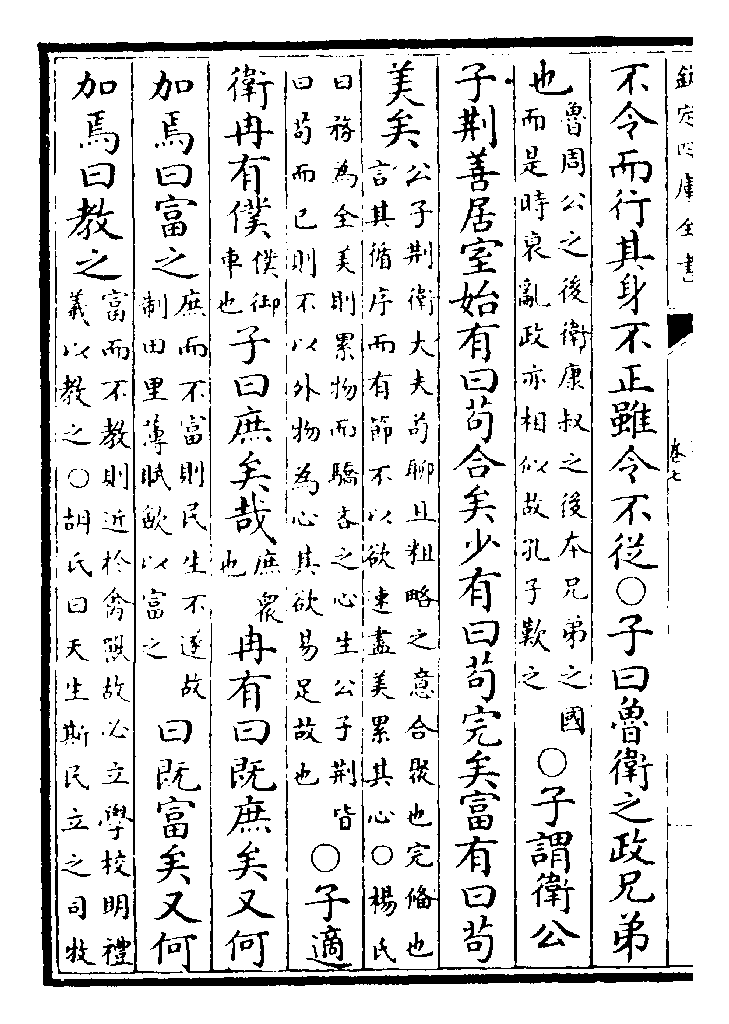 欽定四庫全書 卷七
不令而行其身不正雖令不從○子曰魯衛之政兄弟
也魯周公之後衛康叔之後本兄弟之國而是時衰亂政亦相似故孔子歎之○子謂衛公
子荆善居室始有曰苟合矣少有曰苟完矣富有曰苟
美矣公子荆衛大夫苟聊且粗略之意合聚也完備也言其循序而有節不以欲速盡美累其心○楊氏
曰務為全美則累物而驕吝之心生公子荆皆曰苟而已則不以外物為心其欲易足故也○子適
衛冉有僕僕御車也子曰庶矣哉庶眾也冉有曰既庶矣又何
加焉曰富之庶而不富則民生不遂故制田里薄賦斂以富之曰既富矣又何
加焉曰教之富而不教則近於禽獸故必立學校明禮義以教之○胡氏曰天生斯民立之司牧